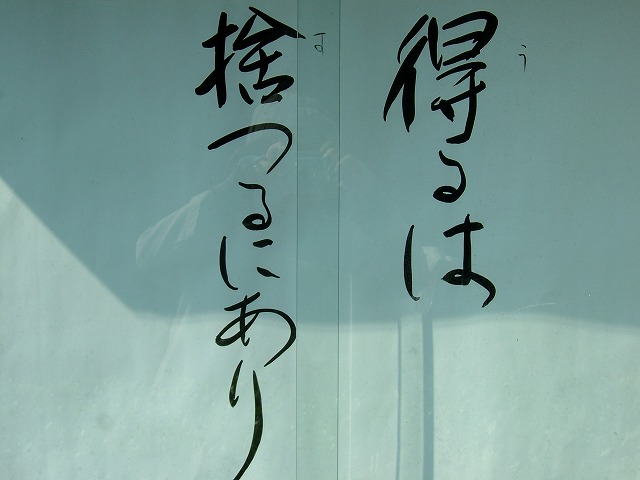 得るは
う
捨つるにあり
す